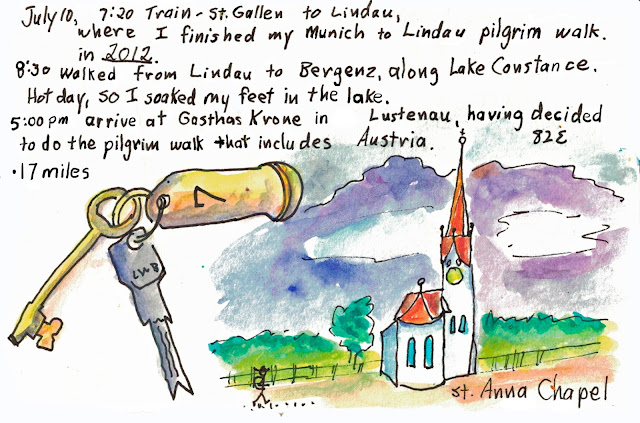 July 10, 7:20 Train - St. Gallen to Lindau,
where I finished my Munich to Lindau pilgrim walk.
in 2012.
8:30 walked from Lindau to Bergenz, along Lake Constance.
Hot day, so I soaked my feet in the lake.
5:00 pm arrive at Gasthas Krone in Lustenau, having decided
to do the pilgrim walk that includes Austria. 82£
·17 miles
7
LWB
St. Anna Chapel